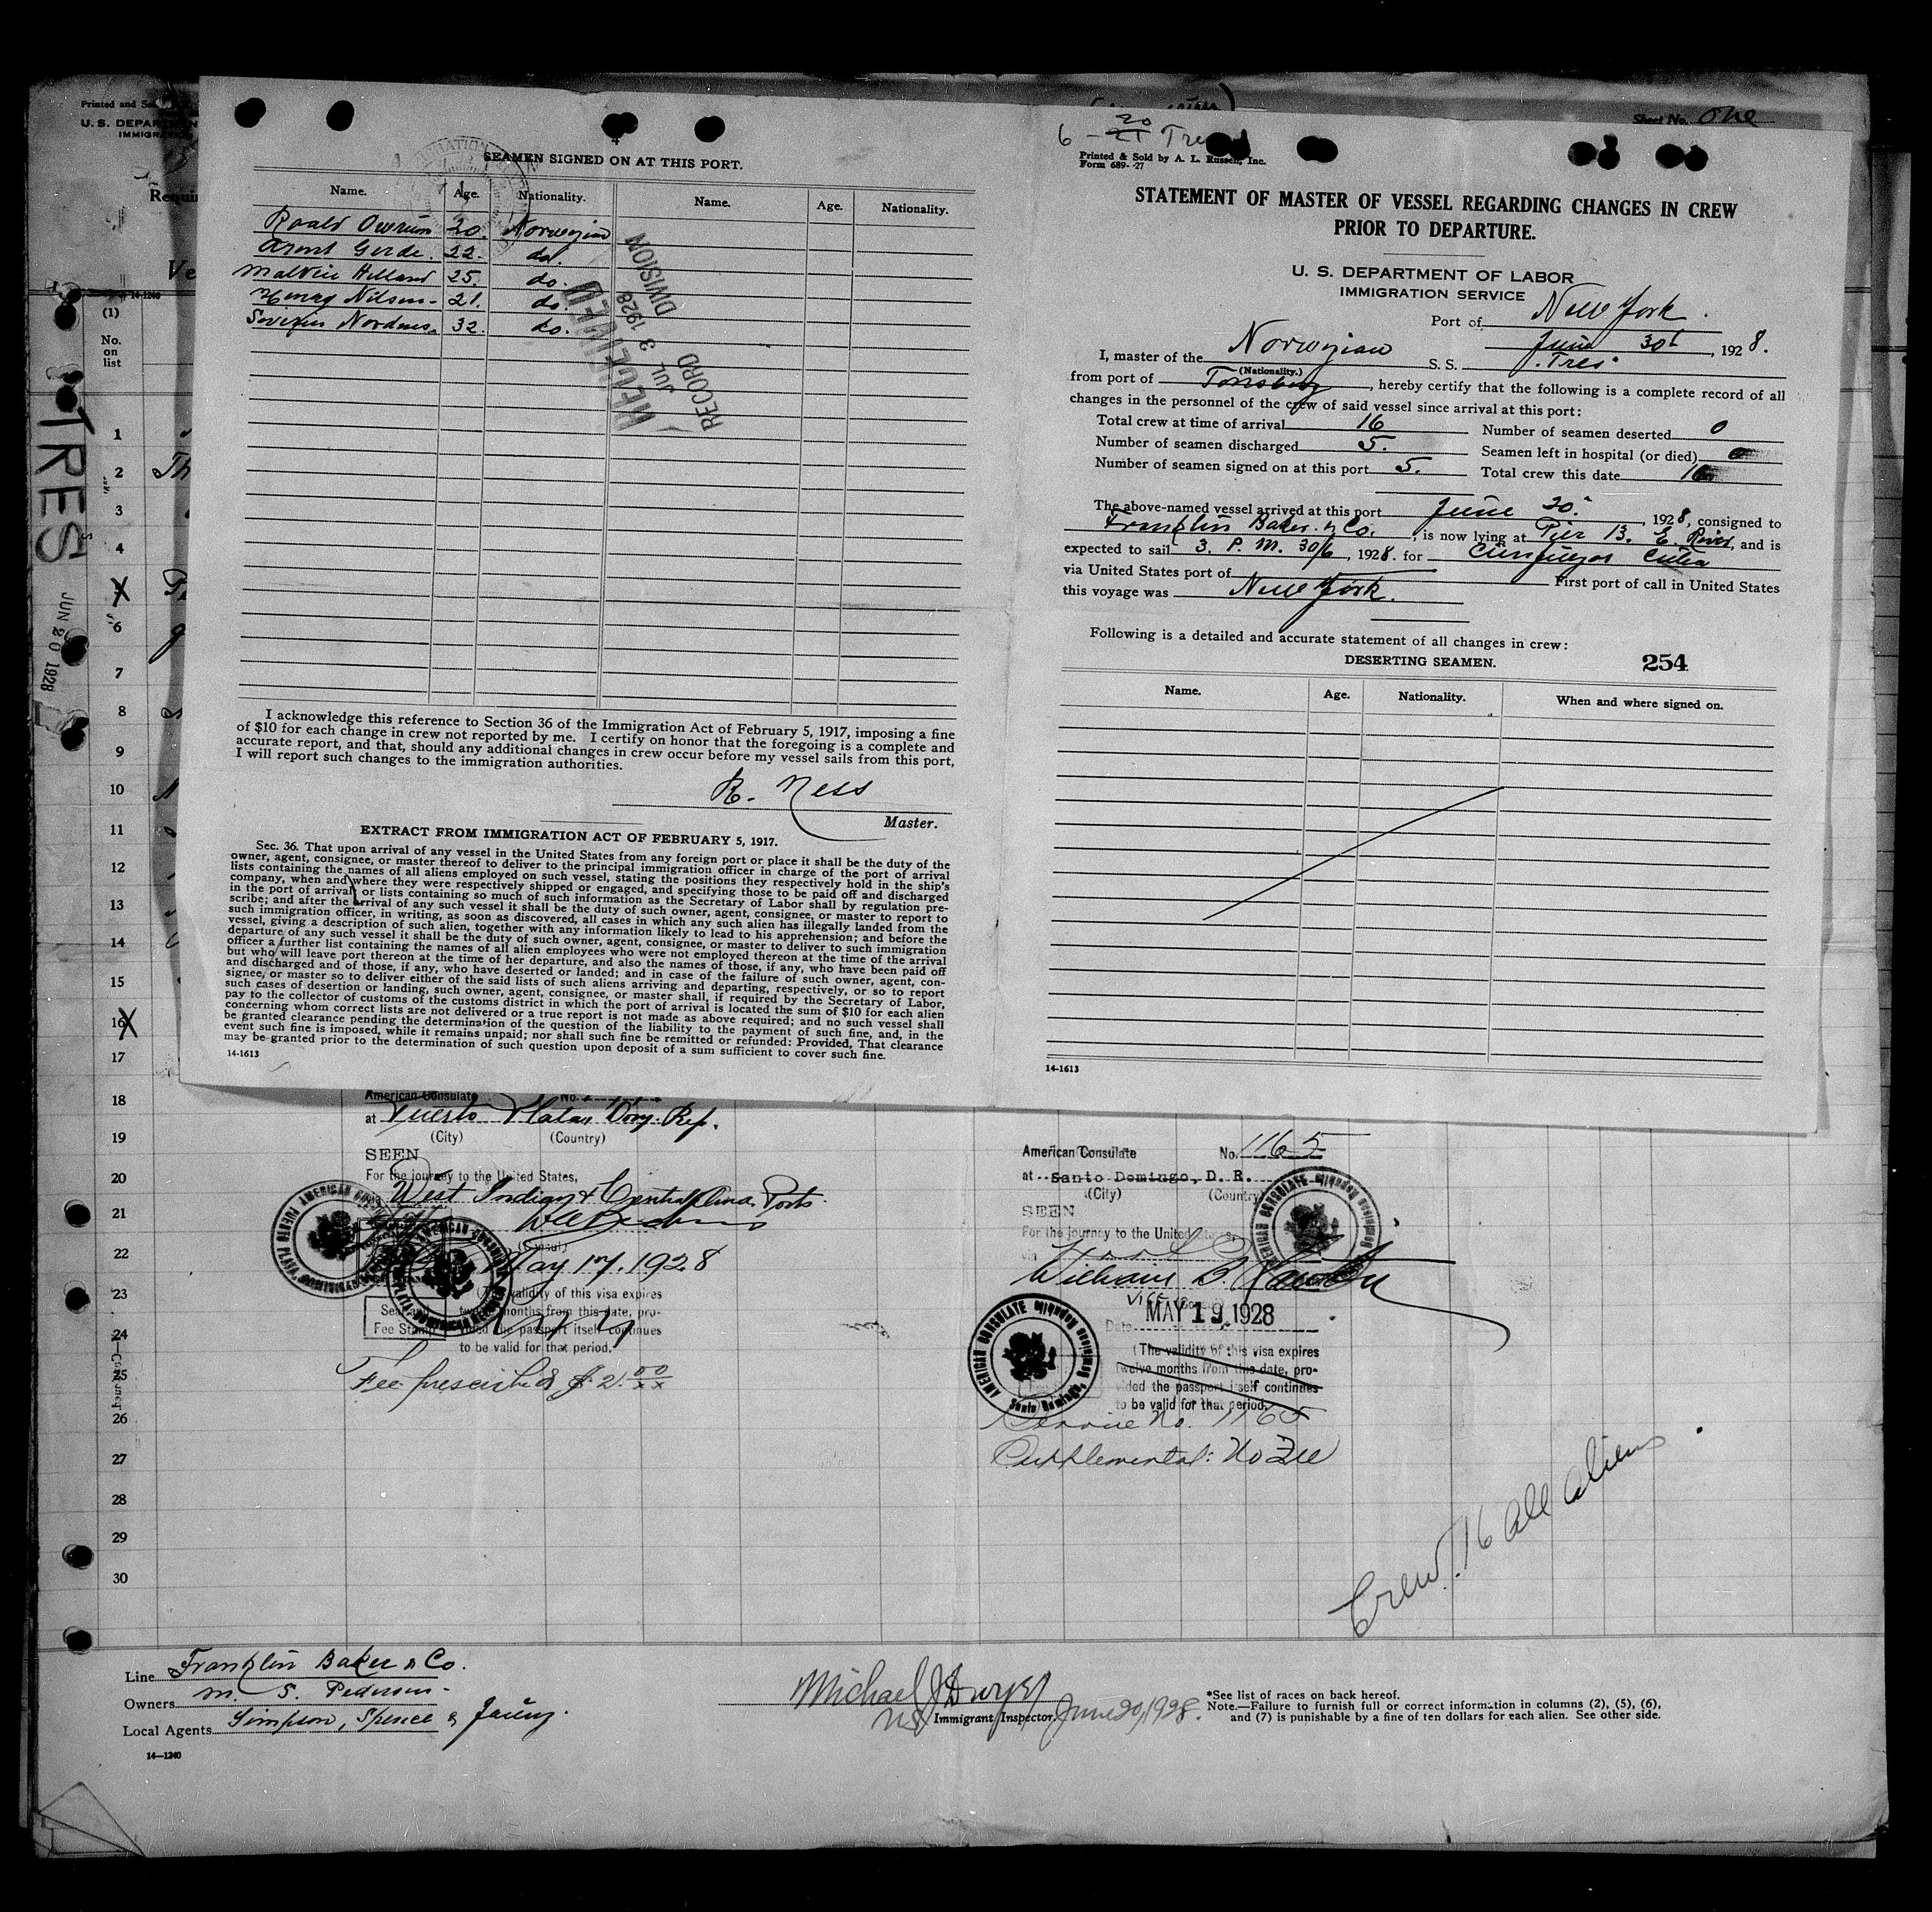 Printed and Sol
U. S. DEPARTMEN
IMMIGRA
Requir
Ve
14-1240
(1)
No.
on
list
TRES
JUN 20 1928
1
2 Th
3
4
X
6
7
8
9
10
11
12
13
14
15
16 X
17
18
19
20
21
22
23
24
25
26
27
28
29
30
Sheet No. One
4
SEAMEN SIGNED ON AT THIS PORT.
Name. Age. Nationality. Name. Age. Nationality.
Roald Owrum 20. Norwegian
Arent Gerde. 22. do.
Malvin Helland 25. do.
Henry Nilsen 21. do.
Nordnes. 32. do.
RECEIVED
JUL 3 1928
RECORD DIVISION
I acknowledge this reference to Section 36 of the Immigration Act of February 5, 1917, imposing a fine
of $10 for each change in crew not reported by me. I certify on honor that the foregoing is a complete and
accurate report, and that, should any additional changes in crew occur before my vessel sails from this port,
I will report such changes to the immigration authorities.
R. Ness
Master.
EXTRACT FROM IMMIGRATION ACT OF FEBRUARY 5, 1917.
Sec. 36. That upon arrival of any vessel in the United States from any foreign port or place it shall be the duty of the
owner, agent, consignee, or master thereof to deliver to the principal immigration officer in charge of the port of arrival
lists containing the names of all aliens employed on such vessel, stating the positions they respectively hold in the ship's
company, when and where they were respectively shipped or engaged, and specifying those to be paid off and discharged
in the port of arrival; or lists containing so much of such information as the Secretary of Labor shall by regulation pre-
scribe; and after the arrival of any such vessel it shall be the duty of such owner, agent, consignee, or master to report to
such immigration officer, in writing, as soon as discovered, all cases in which any such alien has illegally landed from the
vessel, giving a description of such alien, together with any information likely to lead to his apprehension; and before the
departure of any such vessel it shall be the duty of such owner, agent, consignee, or master to deliver to such immigration
officer a further list containing the names of all alien employees who were not employed thereon at the time of the arrival
but who will leave port thereon at the time of her departure, and also the names of those, if any, who have been paid off
and discharged and of those, if any, who have deserted or landed; and in case of the failure of such owner, agent, con-
signee, or master so to deliver either of the said lists of such aliens arriving and departing, respectively, or so to report
such cases of desertion or landing, such owner, agent, consignee, or master shall, if required by the Secretary of Labor,
pay to the collector of customs of the customs district in which the port of arrival is located the sum of $10 for each alien
concerning whom correct lists are not delivered or a true report is not made as above required; and no such vessel shall
be granted clearance pending the determination of the question of the liability to the payment of such fine, and, in the
event such fine is imposed, while it remains unpaid; nor shall such fine be remitted or refunded: Provided, That clearance
may be granted prior to the determination of such question upon deposit of a sum sufficient to cover such fine.
14-1613
6 - 20 21 Tres
Printed & Sold by A. L. Russell, Inc.
Form 689- -27
STATEMENT OF MASTER OF VESSEL REGARDING CHANGES IN CREW
PRIOR TO DEPARTURE.
U. S. DEPARTMENT OF LABOR
IMMIGRATION SERVICE
Port of New York.
June 30t, 1928.
I, master of the Norwegian S. S. "Tres"
(Nationality.)
from port of Tonsberg, hereby certify that the following is a complete record of all
changes in the personnel of the crew of said vessel since arrival at this port:
Total crew at time of arrival 16 Number of seamen deserted 0
Number of seamen discharged 5. Seamen left in hospital (or died) 0
Number of seamen signed on at this port 5. Total crew this date 16
The above-named vessel arrived at this port June 20., 1928, consigned to
Franklin Baker & Co., is now lying at Pier 13. E. River, and is
expected to sail 3. P. M. 30/6, 1928. for Cienfuegos Cuba
via United States port of First port of call in United States
this voyage was New York.
Following is a detailed and accurate statement of all changes in crew:
DESERTING SEAMEN. 254
Name. Age. Nationality. When and where signed on.
14-1613
American Consulate No.
at Puerto Plata, Dom. Rep.
(City) (Country)
SEEN
For the journey to the United States,
West Indian & Central Ama. Ports
(Consul)
May 17, 1928
(The validity of this visa expires
twelve months from this date, pro-
vided the passport itself continues
to be valid for that period.
Seal and
Fee Stamp
Fee prescribed $2.00/xx
American Consulate No. 1165
at Santo Domingo, D. R.
(City) (Country)
SEEN
For the journey to the United States,
via
William B.
Vice
Date MAY 19 1928
(The validity of this visa expires
twelve months from this date, pro-
vided the passport itself continues
to be valid for that period.
Service No. 1165
Supplemental: No Fee
AMERICAN CONSULATE
Santo Domingo, Dominican Republic
Crew 16 all aliens
Line Franklin Baker & Co.
Owners M. S. Pedersen
Local Agents Simpson, Spence & Young.
14—1240
Michael J Dwyer
US Immigrant Inspector. June 20, 1928.
*See list of races on back hereof.
Note.—Failure to furnish full or correct information in columns (2), (5), (6),
and (7) is punishable by a fine of ten dollars for each alien. See other side.